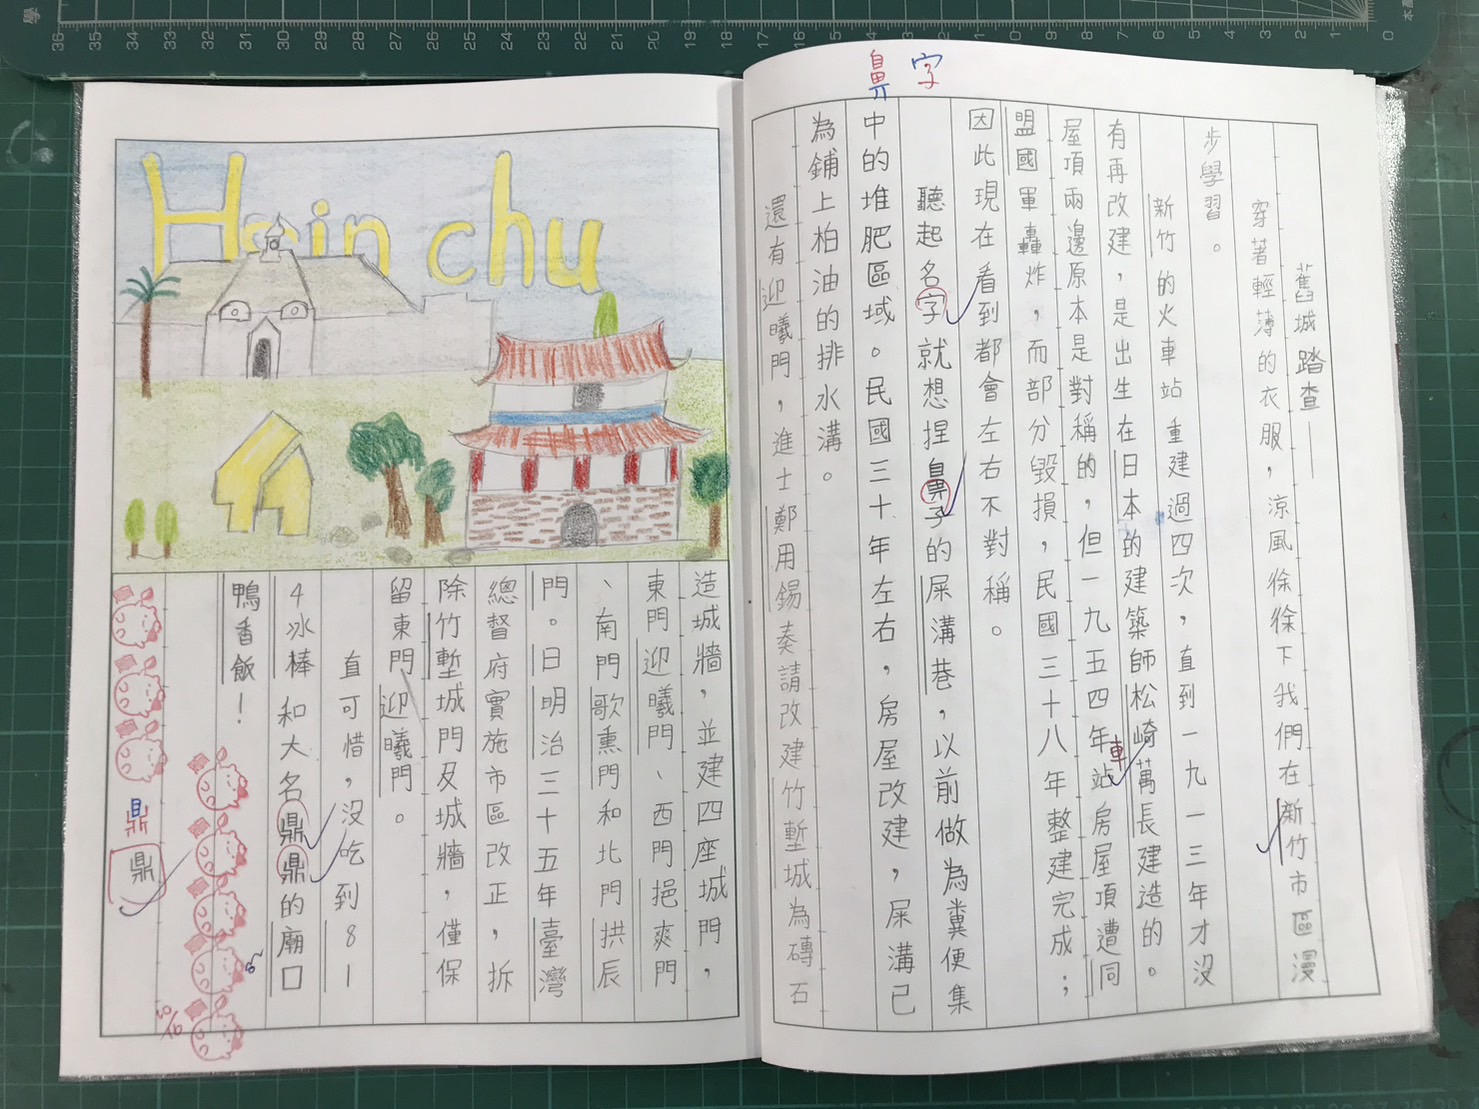 36 35 34 33 32 31 30 29 28 27 26 25 24 23 22 21 20 19 18 17 16
5 4 3 2 1 0
字
鼻
舊城踏查——
穿著輕薄的衣服，涼風徐徐下我們在新竹市區漫
步學習。
新竹的火車站重建過四次，直到一九一三年才沒
有再改建，是出生在日本的建築師松崎萬長建造的。
屋頂兩邊原本是對稱的，但一九五四年車站房屋頂遭同
盟國軍轟炸，而部分毀損，民國三十八年整建完成；
因此現在看到都會左右不對稱。
聽起名字就想捏鼻子的屎溝巷，以前做為糞便集
中的堆肥區域。民國三十年左右，房屋改建，屎溝已
為鋪上柏油的排水溝。
還有迎曦門，進士鄭用錫奏請改建竹塹城為磚石
Hsin chu
造城牆，並建四座城門，
東門迎曦門、西門挹爽門
、南門歌熏門和北門拱辰
門。日明治三十五年臺灣
總督府實施市區改正，拆
除竹塹城門及城牆，僅保
留東門迎曦門。
直可惜，沒吃到81
4冰棒和大名鼎鼎的廟口
鴨香飯！
鼎
鼎